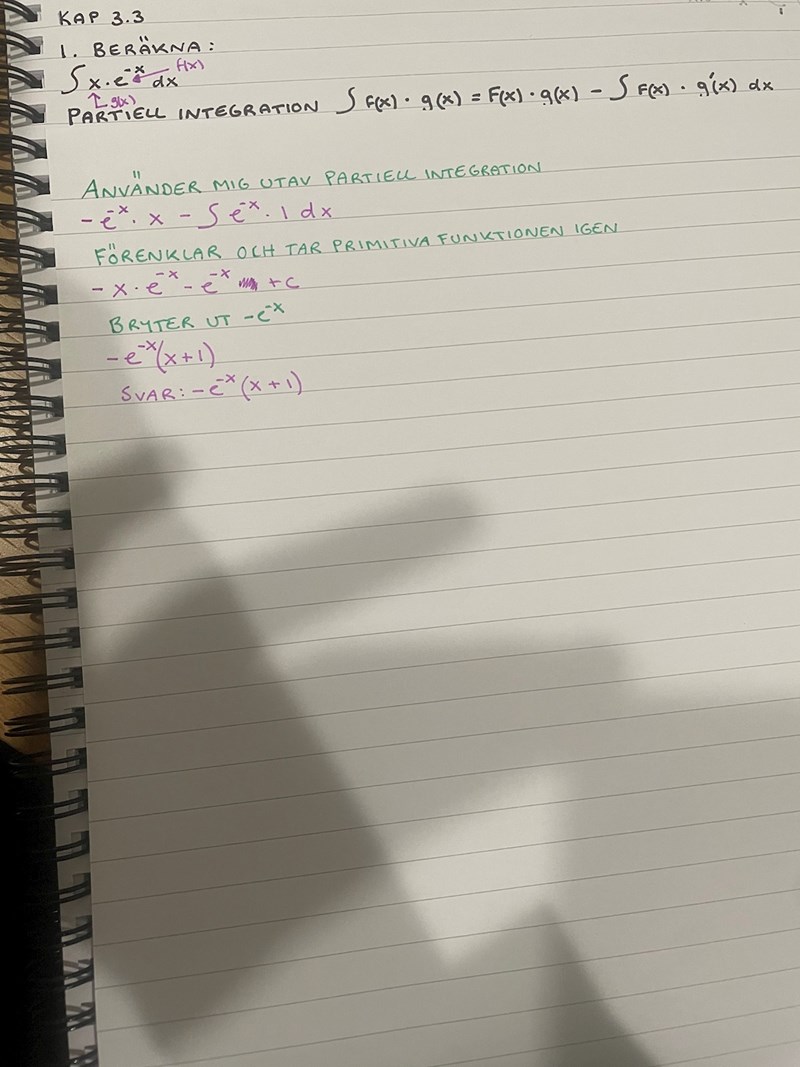 KAP 3.3
1. BERÄKNA:
∫ x · e^-x dx f(x)
g(x)
PARTIELL INTEGRATION ∫ f(x) · g(x) = F(x) · g(x) - ∫ F(x) · g'(x) dx
ANVÄNDER MIG UTAV PARTIELL INTEGRATION
-e^-x · x - ∫ e^-x · 1 dx
FÖRENKLAR OCH TAR PRIMITIVA FUNKTIONEN IGEN
-x · e^-x - e^-x +C
BRYTER UT -e^-x
-e^-x(x+1)
SVAR: -e^-x (x+1)